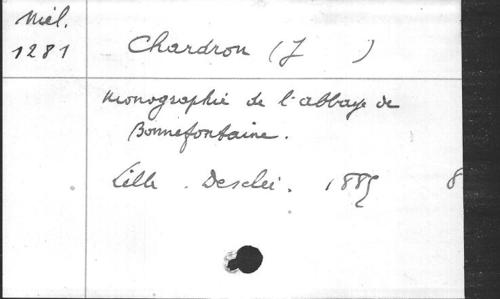 Miél.
1281
Chardron (J )
Monographie de l'abbaye de
Bonnefontaine.
Lille. Desclée. 1885 8